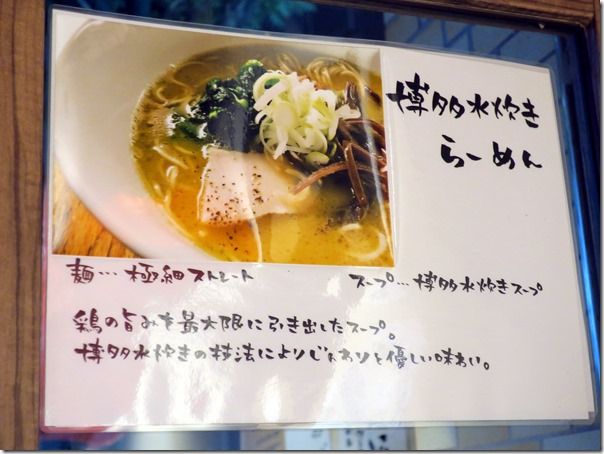 博多水炊き
らーめん
麺…極細ストレート
スープ…博多水炊きスープ
鶏の旨みを最大限に引き出したスープ。
博多水炊きの技法によりじんわりと優しい味わい。